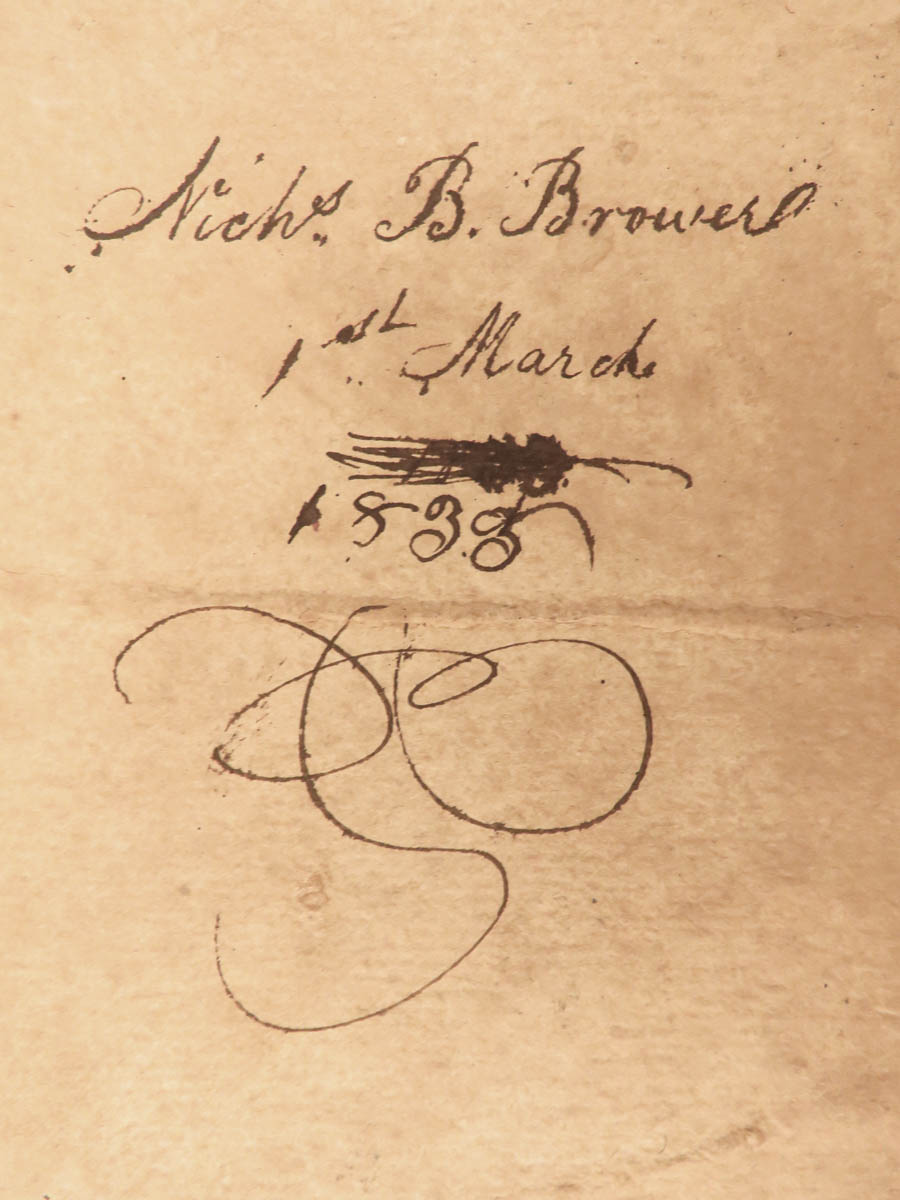 Nichs B. Brower
1st March
1835